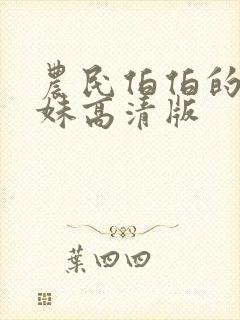 農民伯伯的
妹高清版
葉四四